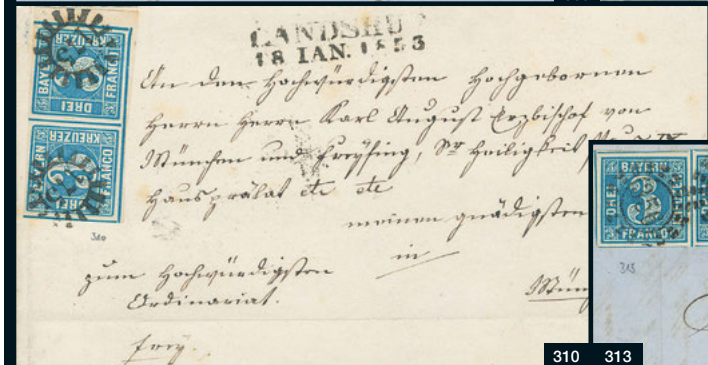 LANDSHU
18 IAN. 1853
BAYERN
DREI
KREUZER
FRANCO
BAYERN
DREI
KREUZER
FRANCO
An den Hochwürdigsten Hochgebornen
Herrn Herrn Karl August Erzbischof von
München und Freysing, Sr Heiligkeit
Hausprälat etc etc
meinen gnädigsten
in
zum Hochwürdigsten
Ordinariat.
Münch
frey.
310
BAYERN
DREI
FRANCO
313
310 313